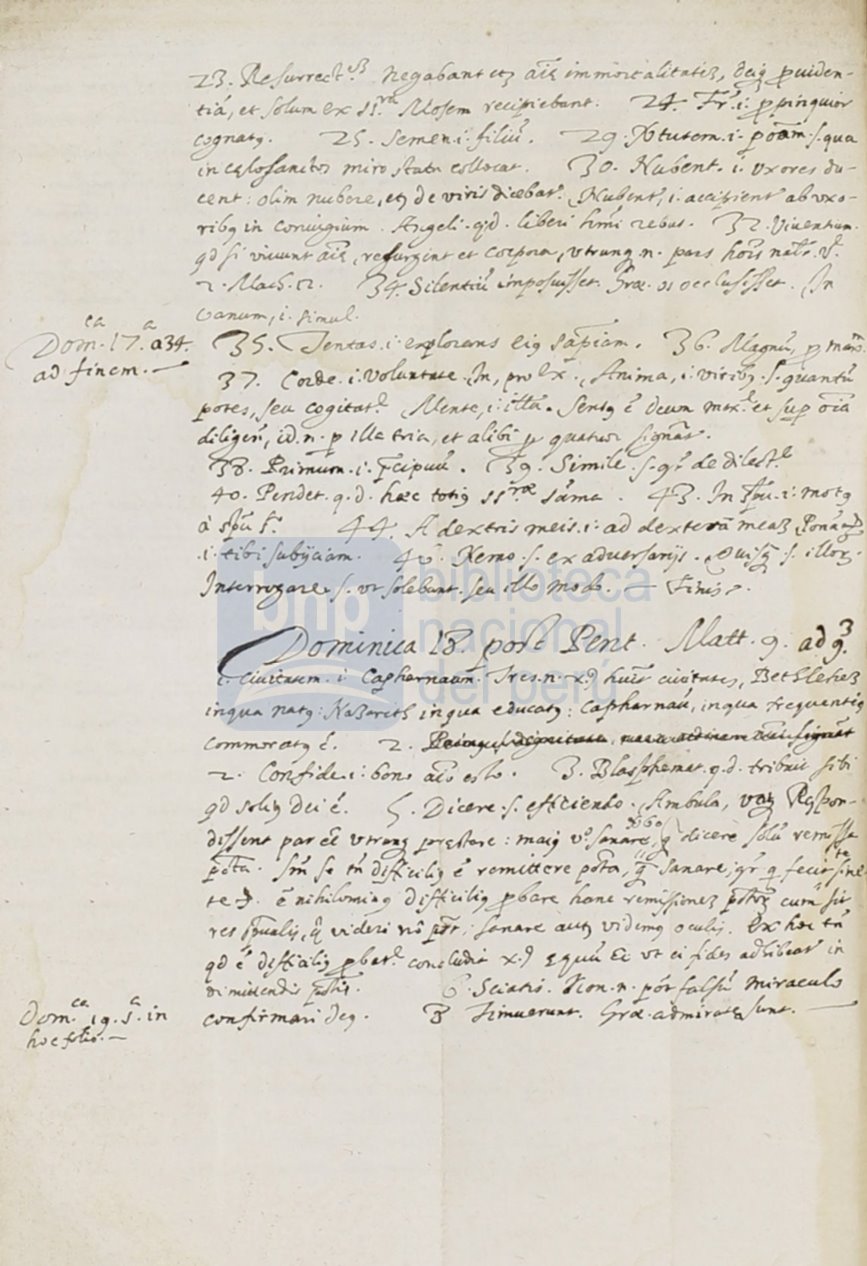 23. Resurrect.ē negabant etȝ aīȩ immortalitatēȝ, deiq; prouiden-
tiā, et solum ex ss.rā Mosem recipiebant. 24. Fr̄. i. propinquior
cognatq. 25. Semen. i. filiū. 29. Virtutem. i. potam. s. qua
in cęlo sanctos miro statu collocat. 30. Nubent. i. vxores du-
cent: olim nubere, etȝ de viris dicebat.r Nubent.r i. accipient.r ab vxo-
ribq in coniugium. Angeli. q.d. liberi hm̄i rebus. 32. Viuentium.
qd si viuunt aīȩ, resurgent et corpora, vtrunq n. pars hoīs
2. Mach. 12. 34. Silentiū imposuisset. Gręc. os occlusisset. In
vanum, i. simul.
Dom.ca 17.a a 34.
ad finem. —
35. Tentās. i. explorans eiq sapīam. 36. Magnū, p
37. Corde. i. voluntate. In, pro ex. Anima, i. viribq. s. quantū
potes, seu cogitat.e Mente, i. Sensq ē deum et sup oīa
diligere, id. n. p illa tria, et alibi p quatuor signāt.r
38. Primum. i. pr̄cipuū. 39. Simile. s. q.a de dilect.e
40. Pendet. q. d. hæc totiq ss.ræ sūma. 43. In spū. i. motq
à spū s.to 44. A dextris meis. i. ad dexterā meaȝ
i. tibi subijciam. 46. Nemo. s. ex aduersarijs. Quisq̄ s. illorȝ
Interrogare. s. vt solebant. seu illo modo. — Finis.
Dominica 18. post Pent. Matt. 9. ad 9.
1. Ciuitatem. i. Capharnaum. Tres. n. x.i huiūs ciuitates, Bethleheȝ
in qua natq: Nazareth in qua educatq: Capharnaū, in qua frequentiq
commoratq ē. 2.
2. Confide. i. bono aīo esto. 3. Blasphemat. q. d. tribuit sibi
qd soliq dei ē. 5. Dicere. s. efficiendo. Ambula, Respon-
dissent par eē vtrunq prestare: maiq v.o sanare, q̄ dicere solū remissa
pctā. Sm se tn̄ difficiliq ē remittere pctā, q̄ sanare,
ē nihilominq difficiliq probare hanc remissioneȝ pctorȝ cum sit
res sp̄ualis, q̄ videri nō pōt, sanare autȝ videmq oculis. Ex hoc tn̄
qd ē difficiliq probat.u concludit x.s ęquū eē vt ei fides adhibeat.r in
dimittendis pctis. 6. Sciatis. Non. n. pōt falsū miraculo
Dom.ca 19. s.a in
hoc folio. —
confirmari deq. 8 Timuerunt. Græ. admirati sunt. —
biblioteca
nacional
del perú
bnp